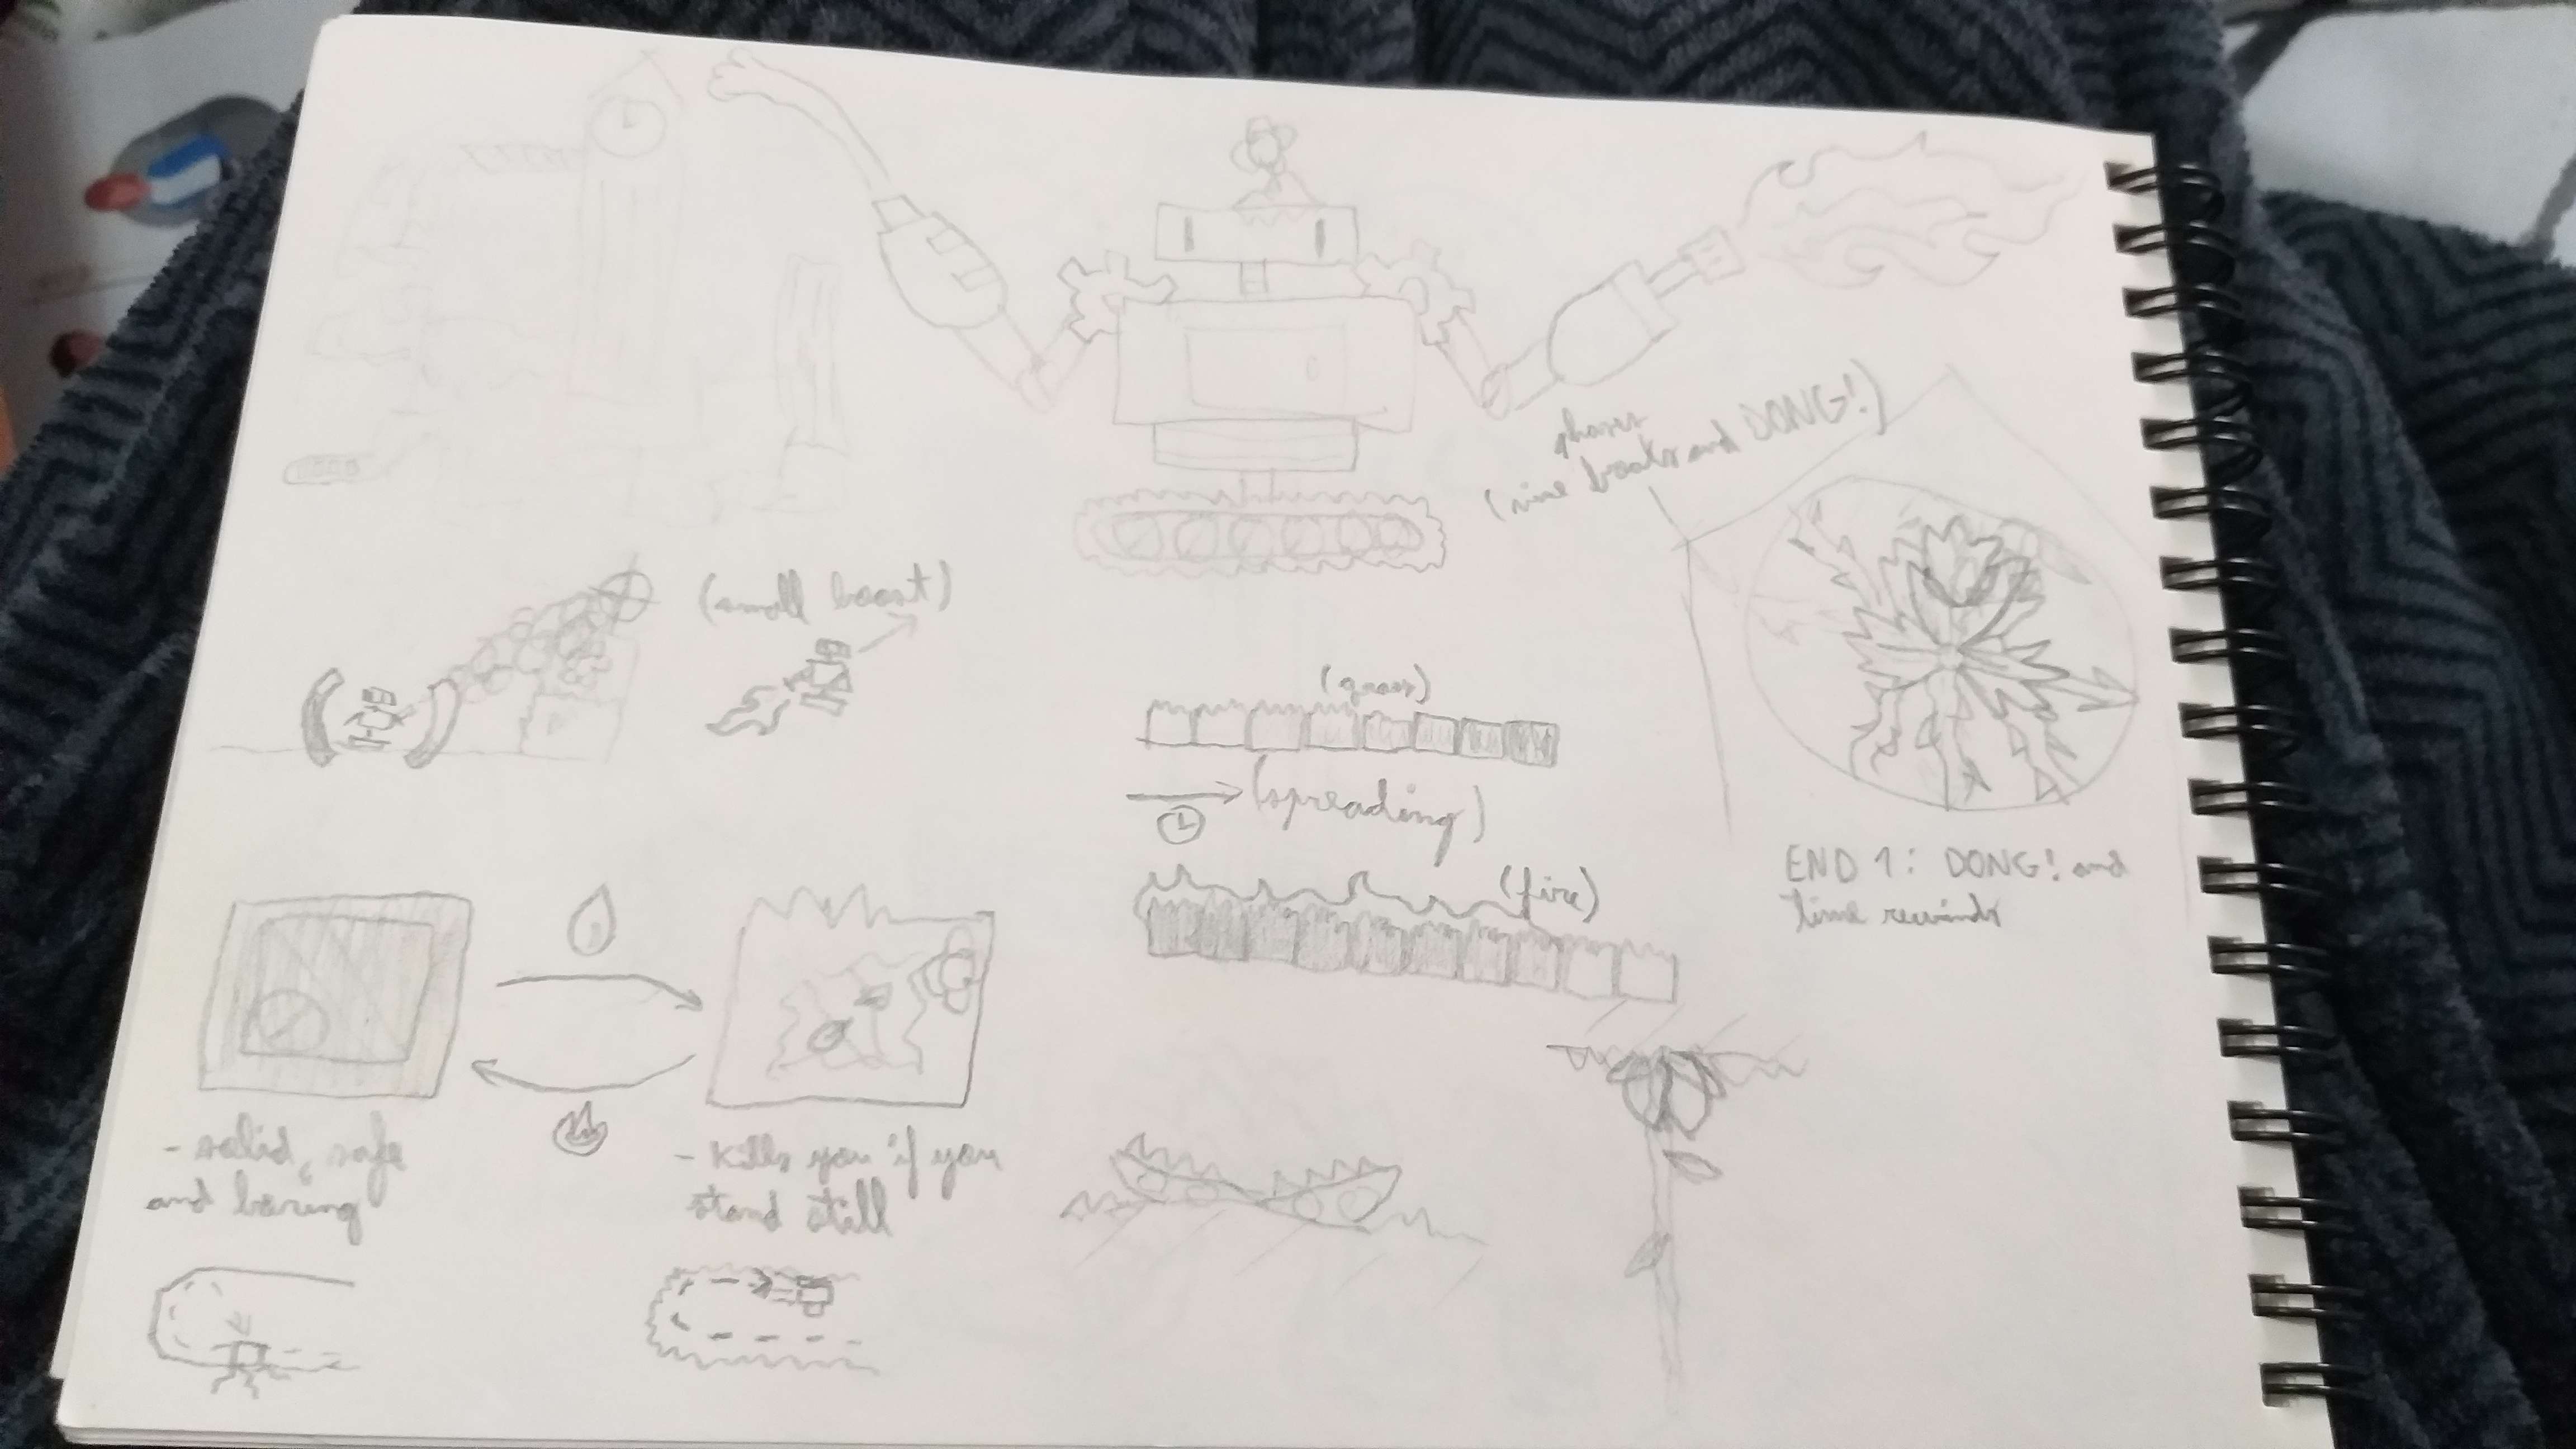 phases
(nine beats and DONG!)
(small boost)
(grass)
(spreading)
(fire)
END 1: DONG! and
time rewinds
- solid, safe
and boring
- kills you if you
stand still